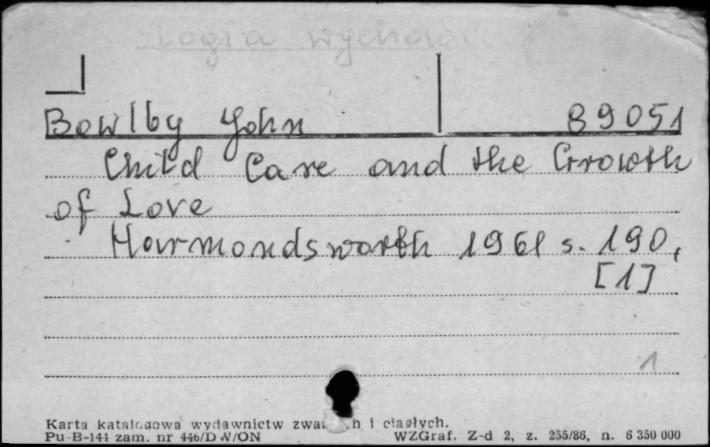 ologia wychow
Bowlby John 89051
Child Care and the Growth
of Love
Harmondsworth 1961 s. 190,
[1]
1
Karta katalogowa wydawnictw zwa h i ciągłych.
Pu-B-144 zam. nr 446/D W/ON WZGraf. Z-d 2, z. 255/86, n. 6 350 000